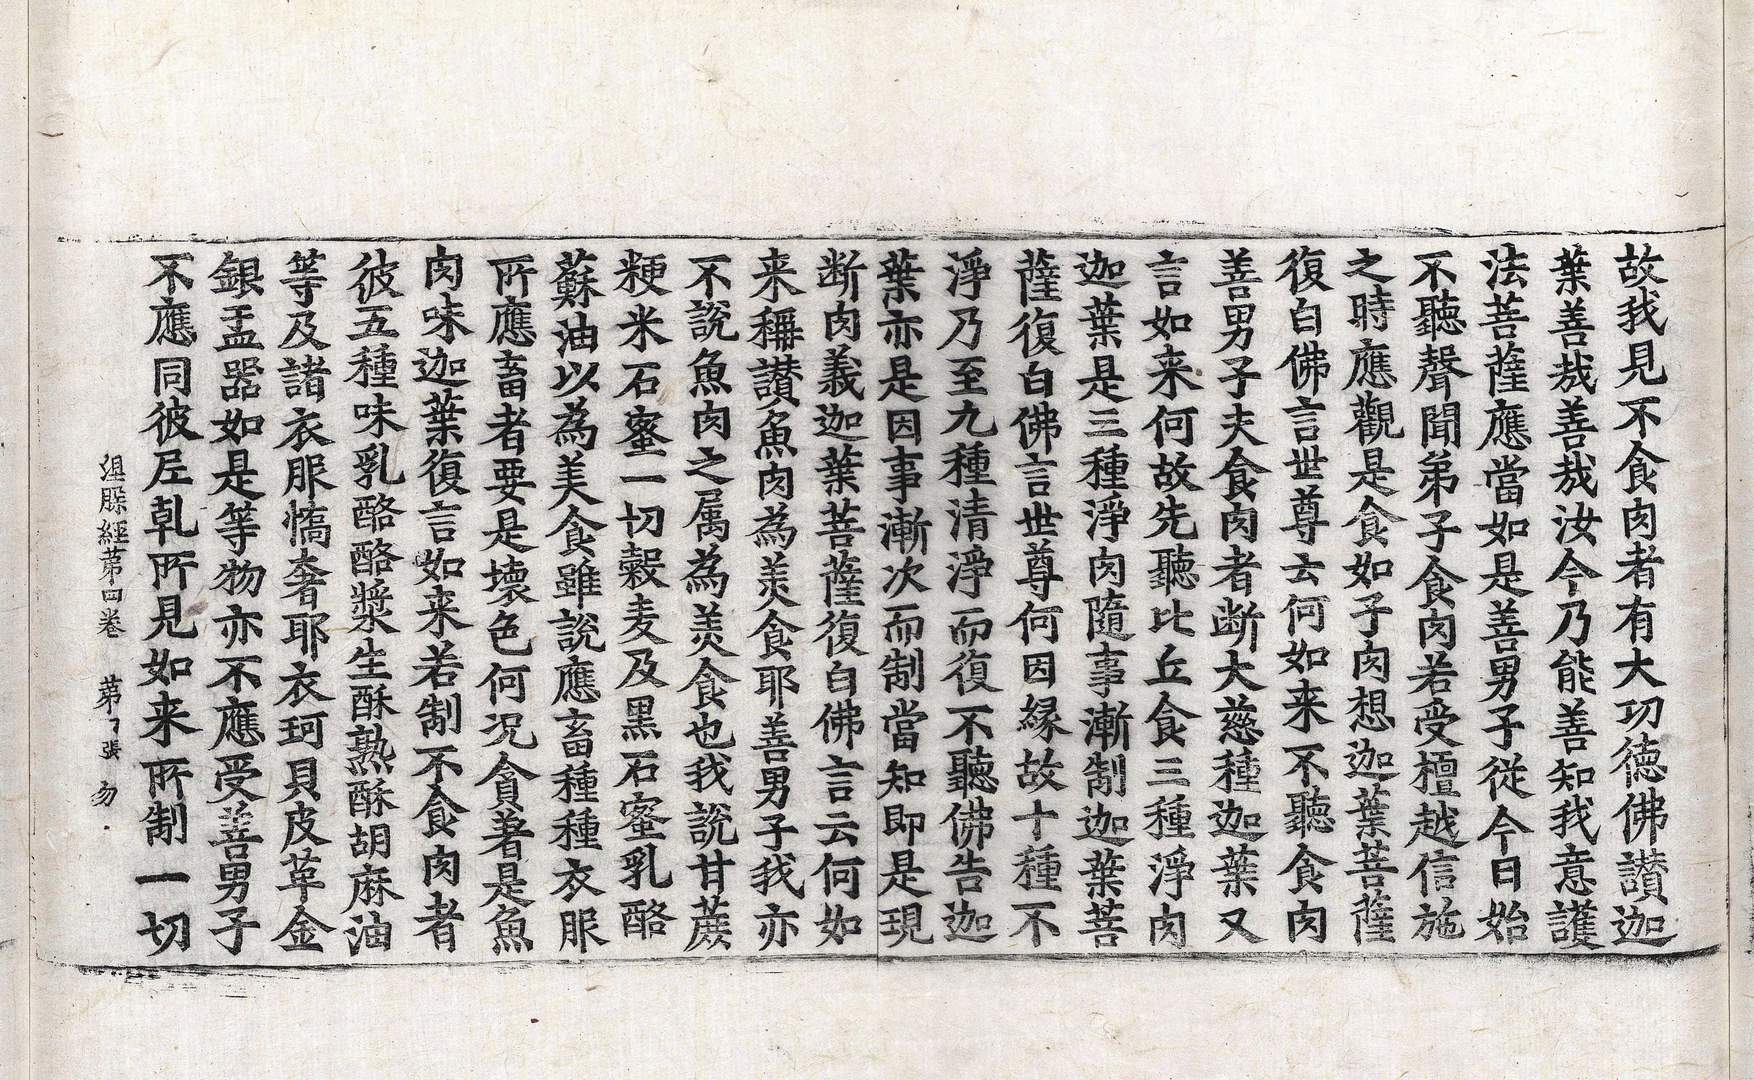 故我見不食肉者有大功德佛讃迦
葉善哉善哉汝今乃能善知我意護
法菩薩應當如是善男子従今日始
不聽聲聞弟子食肉若受檀越信施
之時應觀是食如子肉想迦葉菩薩
復白佛言世尊云何如来不聽食肉
善男子夫食肉者断大慈種迦葉又
言如来何故先聽比丘食三種淨肉
迦葉是三種淨肉隨事漸制迦葉菩
薩復白佛言世尊何因縁故十種不
淨乃至九種清淨而復不聽佛告迦
葉亦是因事漸次而制當知即是現
断肉義迦葉菩薩復白佛言云何如
来稱讃魚肉為美食耶善男子我亦
不說魚肉之属為美食也我說甘蔗
粳米石蜜一切穀麦及黒石蜜乳酪
蘇油以為美食雖說應畜種種衣服
所應畜者要是壞色何况貪著是魚
肉味迦葉復言如来若制不食肉者
彼五種味乳酪酪漿生酥熟酥胡麻油
等及諸衣服憍奢耶衣珂貝皮革金
銀盂器如是等物亦不應受善男子
不應同彼尼乹所見如来所制一切
經第四卷 第 張 勿